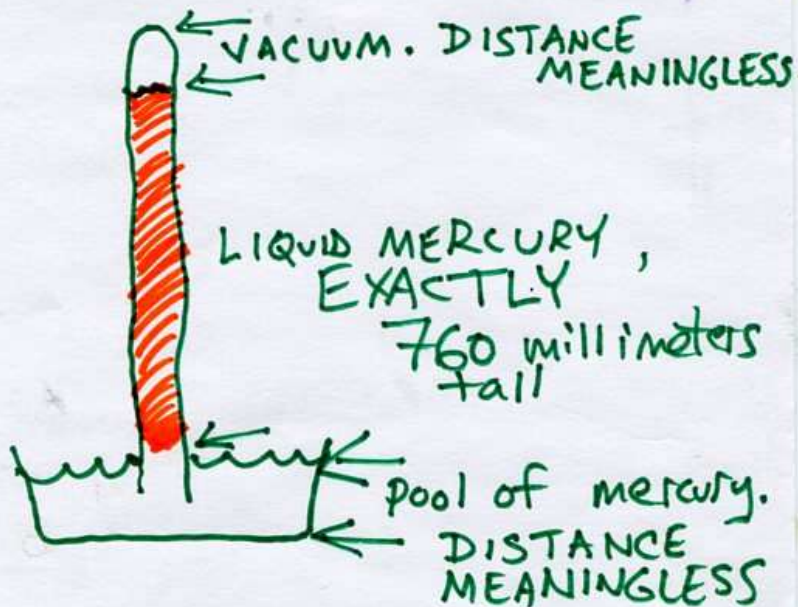 VACUUM. DISTANCE
MEANINGLESS
LIQUID MERCURY,
EXACTLY
760 millimeters
tall
pool of mercury.
DISTANCE
MEANINGLESS